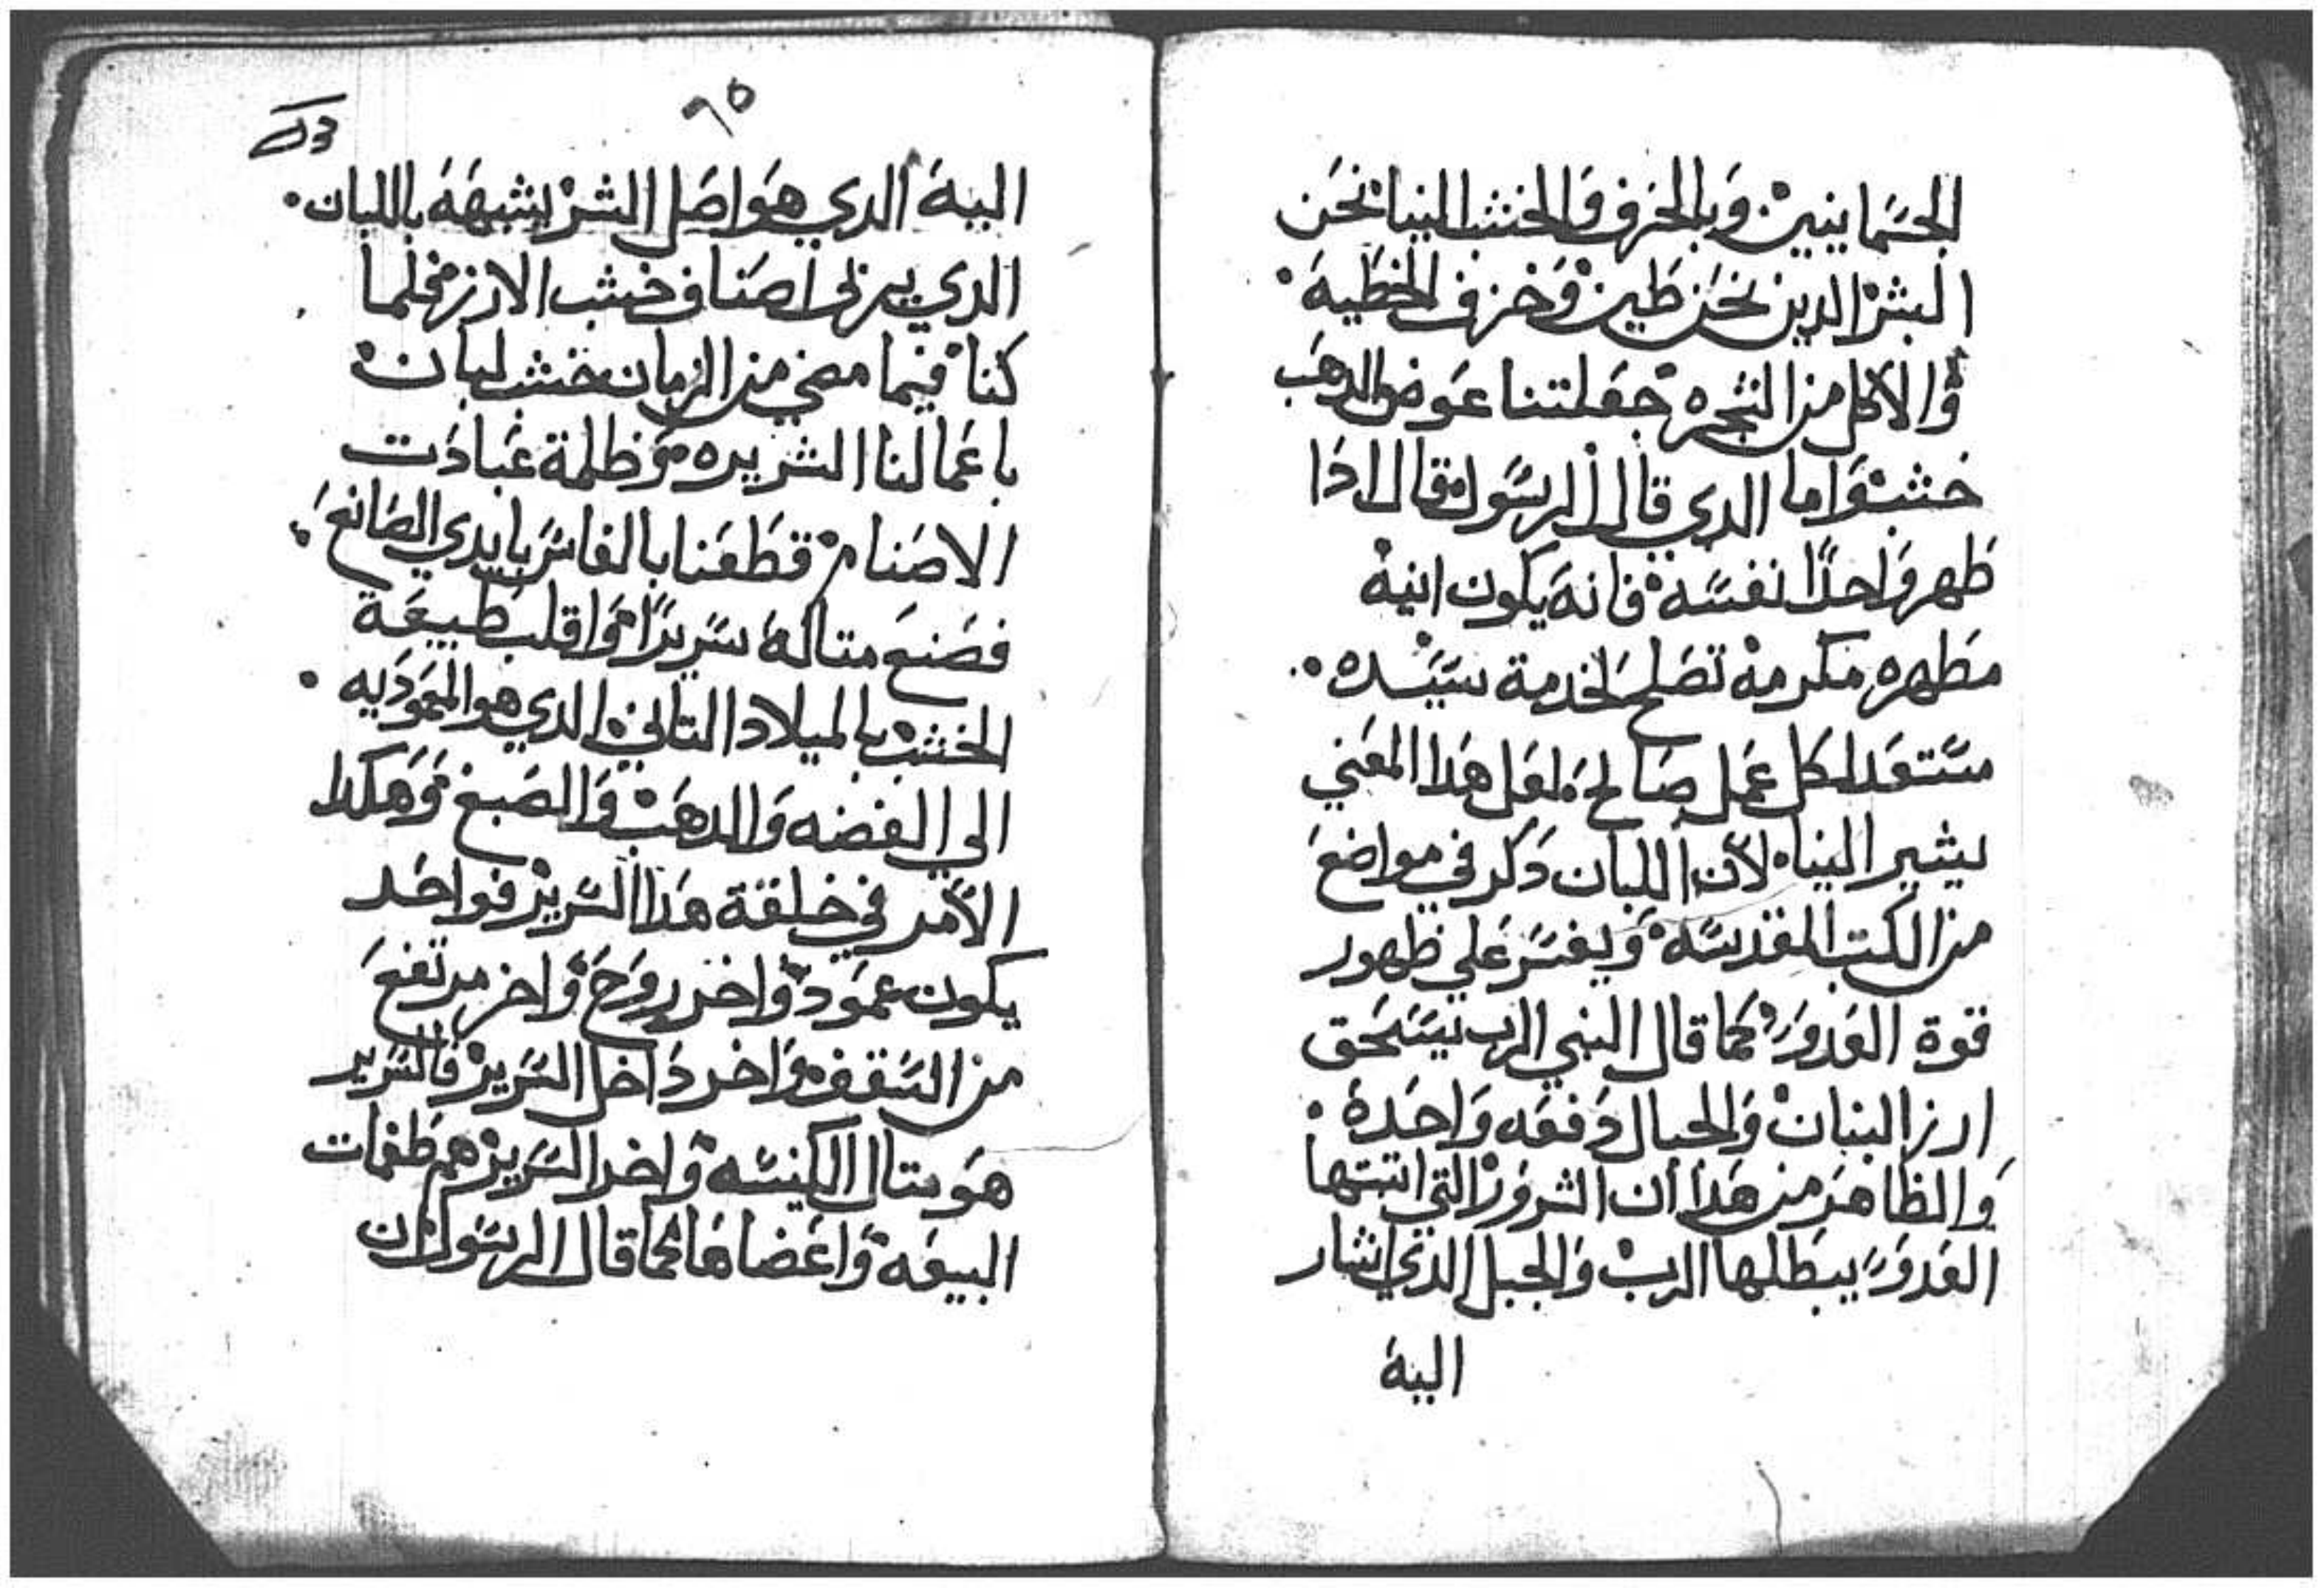 الجسمانيين وبالخزف والخشب الينا نحن
البشر الدين نحن طين وخزف الخطية
والاكل من الشجره جعلتنا عوض الدهب
خشب واما الدي قال الرسول قال ادا
طهر واحدا نفسه فانه يكون انية
مطهره مكرمه تصلح لخدمة سيده
مستعد لكل عمل صالح لعل هدا المعني
يشير الينا لان اللبان دكر في مواضع
من الكتب المقدسه ويفسر علي ظهور
قوة العدو كما قال النبي الرب يسحق
ارز البنان والجبال دفعه واحدة
والظاهر من هدا ان الشرور التي اتبتها
العدو يبطلها الرب والجبل الدي اشار
اليه
٦٥
اليه الدي هو اصل الشر يشبهه باللبان
الدي يربي اصناف خشب الارز فلما
كنا فيما مضي من الزمان خشب لبان
باعمالنا الشريره وظلمة عبادت
الاصنام قطعنا بالفاس بايدي الصانع
فصنع متاله سريرا واقلب طبيعة
الخشب بالميلاد التاني الدي هو المعموديه
الي الفضه والدهب والصبغ وهكدا
الامر في خلقة هدا السرير فواحد
يكون عمود واخر روح واخر مرتفع
من السقف واخر داخل السرير فالسرير
هو متال الكنيسه واخدا السرير هم طغمات
البيعه واعضاها كما قال الرسول ان